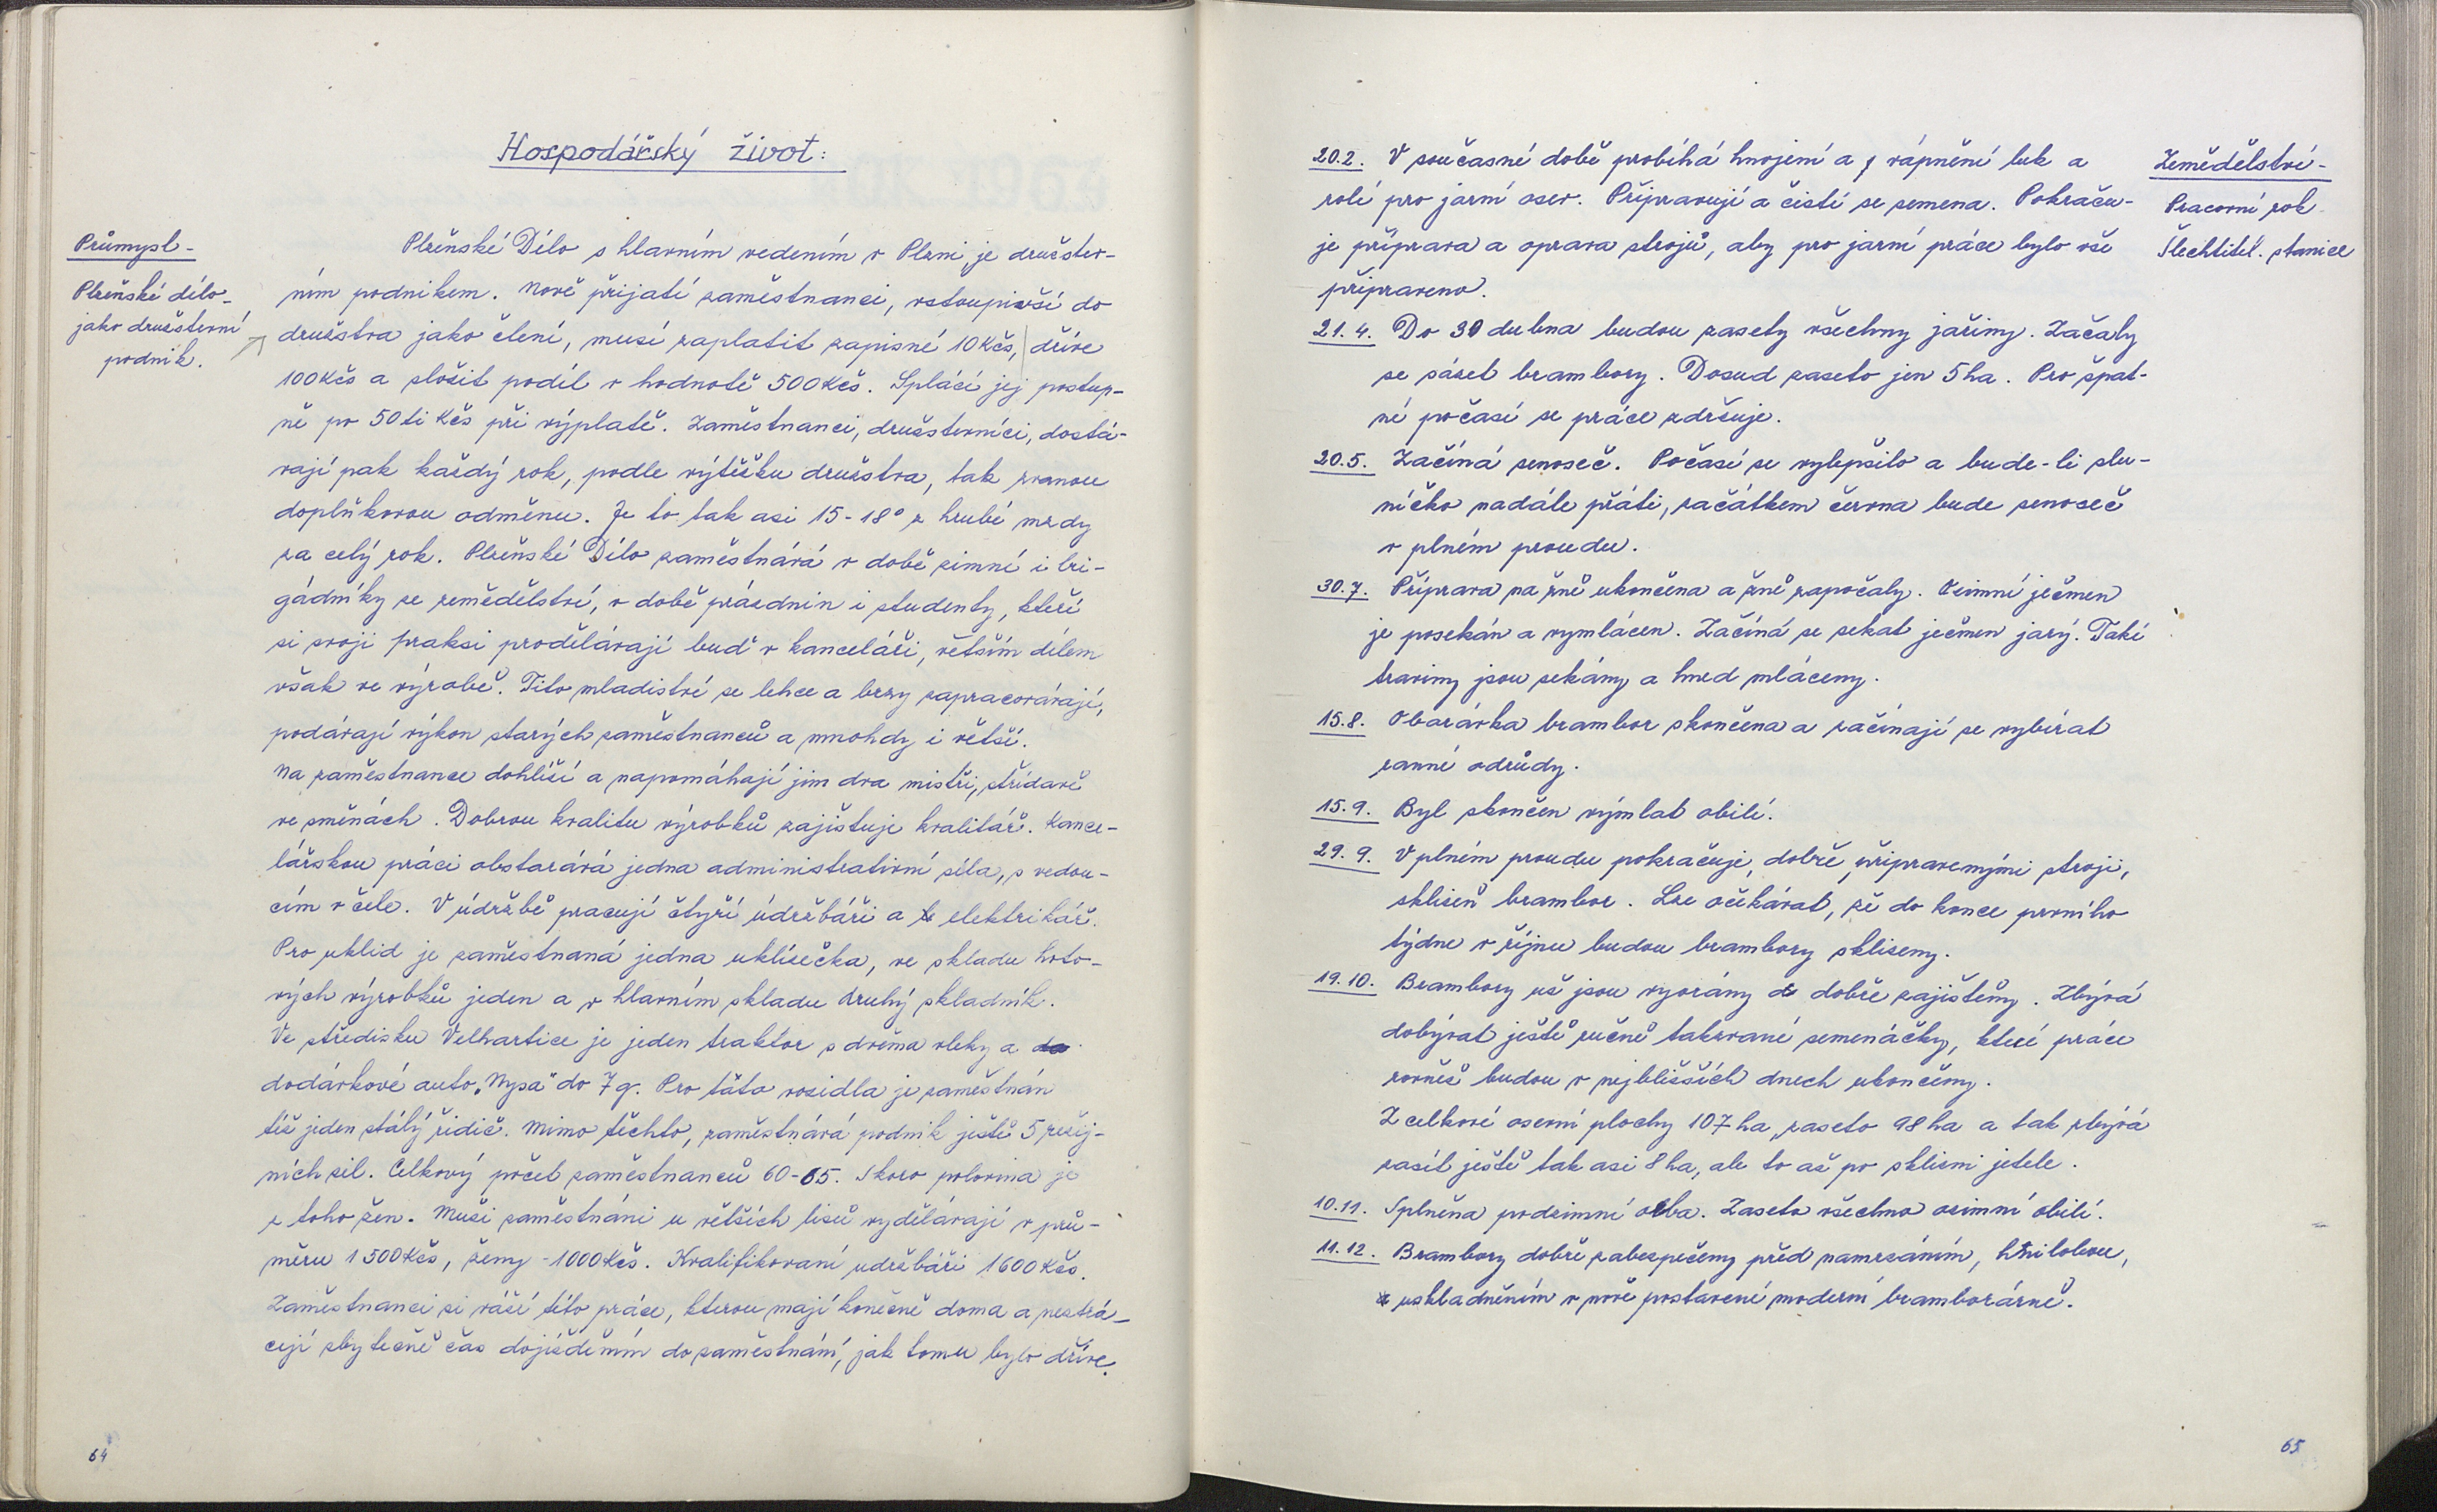 Hospodářský život:
Průmysl -
Plzeňské dílo -
jako družstevní
podnik.
Plzeňské Dílo s hlavním vedením v Plzni, je družstev-
ním podnikem. Nově přijatí zaměstnanci, vstoupivší do
družstva jako člení, musí zaplatit zapisné 10 Kčs, dříve
100 Kčs a složit podíl v hodnotě 500 Kčs. Splácí jej postup-
ně po 50ti Kčs při výplatě. Zaměstnanci, družstevníci, dostá-
vají pak každý rok, podle výtěžku družstva, tak zvanou
doplňkovou odměnu. Je to tak asi 15-18° z hrubé mzdy
za celý rok. Plzeňské Dílo zaměstnává v době zimní i bri-
gádníky ze zemědělství, v době prázdnin i studenty, kteří
si svoji praksi prodělávají buď v kanceláři, větším dílem
však ve výrobě. Tito mladiství se lehce a brzy zapracovávají,
podávají výkon starých zaměstnanců a mnohdy i větší.
Na zaměstnance dohlíží a napomáhají jim dva mistři, střídavě
ve směnách. Dobrou kvalitu výrobků zajištuje kvalitář. Kance-
lářskou práci obstarává jedna administrativní síla, s vedou-
cím v čele. V údržbě pracují čtyři údržbáři a elektrikář.
Pro uklid je zaměstnaná jedna uklízečka, ve skladu hoto-
vých výrobků jeden a v hlavním skladu druhý skladník.
Ve středisku Velhartice je jeden traktor s dvěma vleky a
dodávkové auto „Nysa" do 7 q. Pro táto vozidla je zaměstnán
též jeden stálý řidič. Mimo těchto, zaměstnává podnik ještě 5 režij-
ních sil. Celkový počet zaměstnanců 60-65. Skoro polovina je
z toho žen. Muži zaměstnáni u větších lisů vydělávají v prů-
měru 1500 Kčs, ženy - 1000 Kčs. Kvalifikovaní udržbáři 1600 Kčs.
Zaměstnanci si váží této práce, kterou mají konečně doma a neztrá-
cejí zbytečně čas dojížděním do zaměstnání, jak tomu bylo dříve.
64
Zemědělství -
Pracovní rok
Šlechtitel. stanice
20.2. V současné době probíhá hnojení a vápnění luk a
rolí pro jarní osev. Připravují a čistí se semena. Pokraču-
je příprava a oprava strojů, aby pro jarní práce bylo vše
připraveno.
21.4. Do 30 dubna budou zasety všechny jařiny. Začaly
se sázet brambory. Dosud zaseto jen 5 ha. Pro špat-
né počasí se práce zdržuje.
20.5. Začíná senoseč. Počasí se vylepšilo a bude-li slu-
níčko nadále přáti, začátkem června bude senoseč
v plném proudu.
30.7. Příprava na žně ukončena a žně započaly. Ozimní ječmen
je posekán a vymlácen. Začíná se sekat ječmen jarý. Také
traviny jsou sekány a hned mláceny.
15.8. Obarávka brambor skončena a začínají se vybírat
ranné odrůdy.
15.9. Byl skončen výmlat obilí.
29.9. V plném proudu pokračuje, dobře připravenými stroji,
sklizeň brambor. Lze očekávat, že do konce prvního
týdne v říjnu budou brambory sklizeny.
19.10. Brambory už jsou vyorány a dobře zajištěny. Zbývá
dobývat ještě ručně takzvané semenáčky, které práce
rovněž budou v nejbližších dnech ukončeny.
Z celkové osevní plochy 107 ha, zaseto 98 ha a tak zbývá
zasít ještě tak asi 8 ha, ale to až po sklizni jetele.
10.11. Splněna podzimní orba. Zaseto všechno ozimní obilí.
11.12. Brambory dobře zabezpečeny před namrzáním, hnilobou,
uskladněním v nově postavené moderní bramborárně.
65